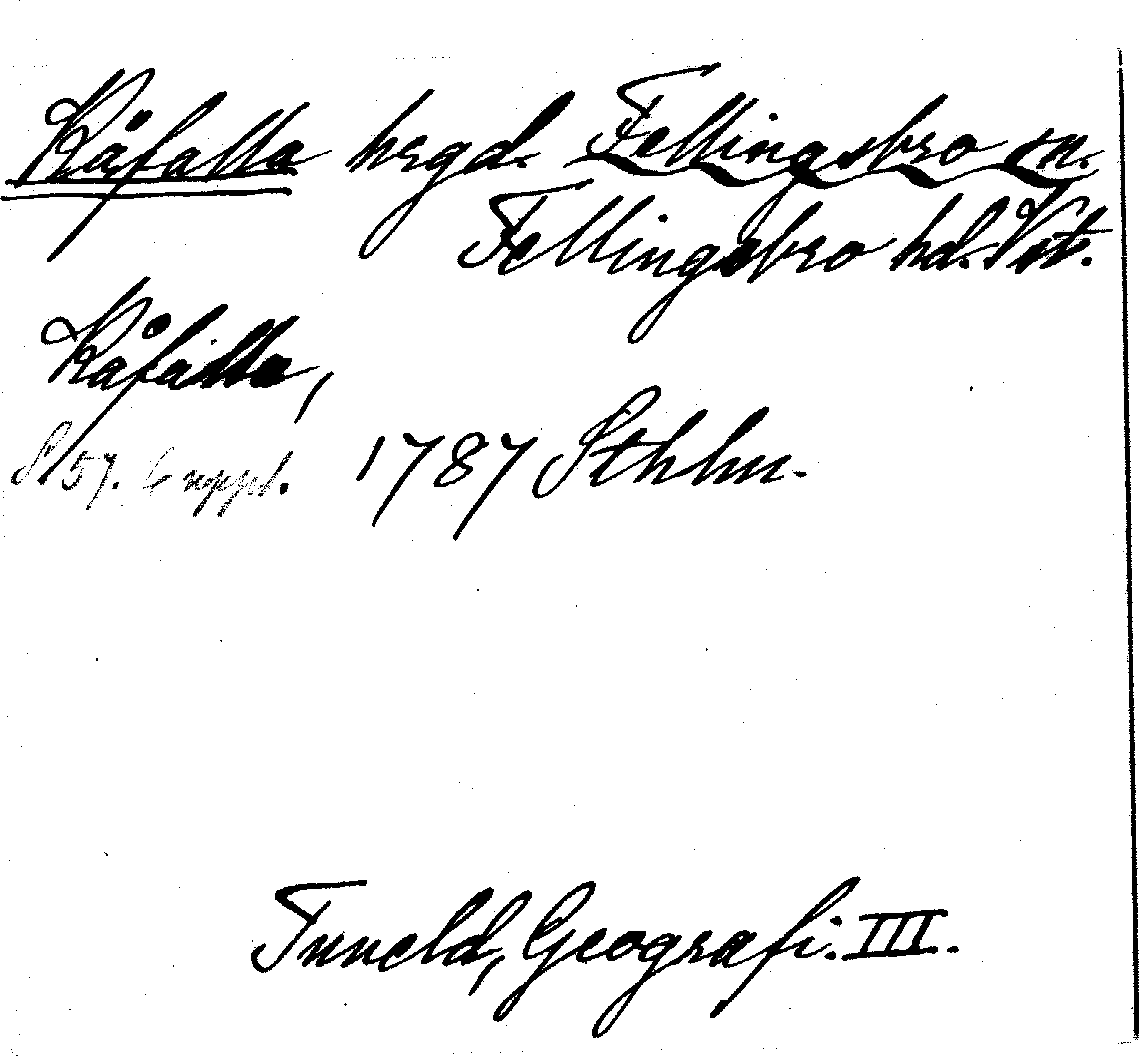 Kåfalla hrgd. Fellingsbro sn.
Fellingsbro hd. Vst.
Kåfalla,
S. 57. 6 uppl. 1787 Sthlm.
Tuneld, Geografi. III.